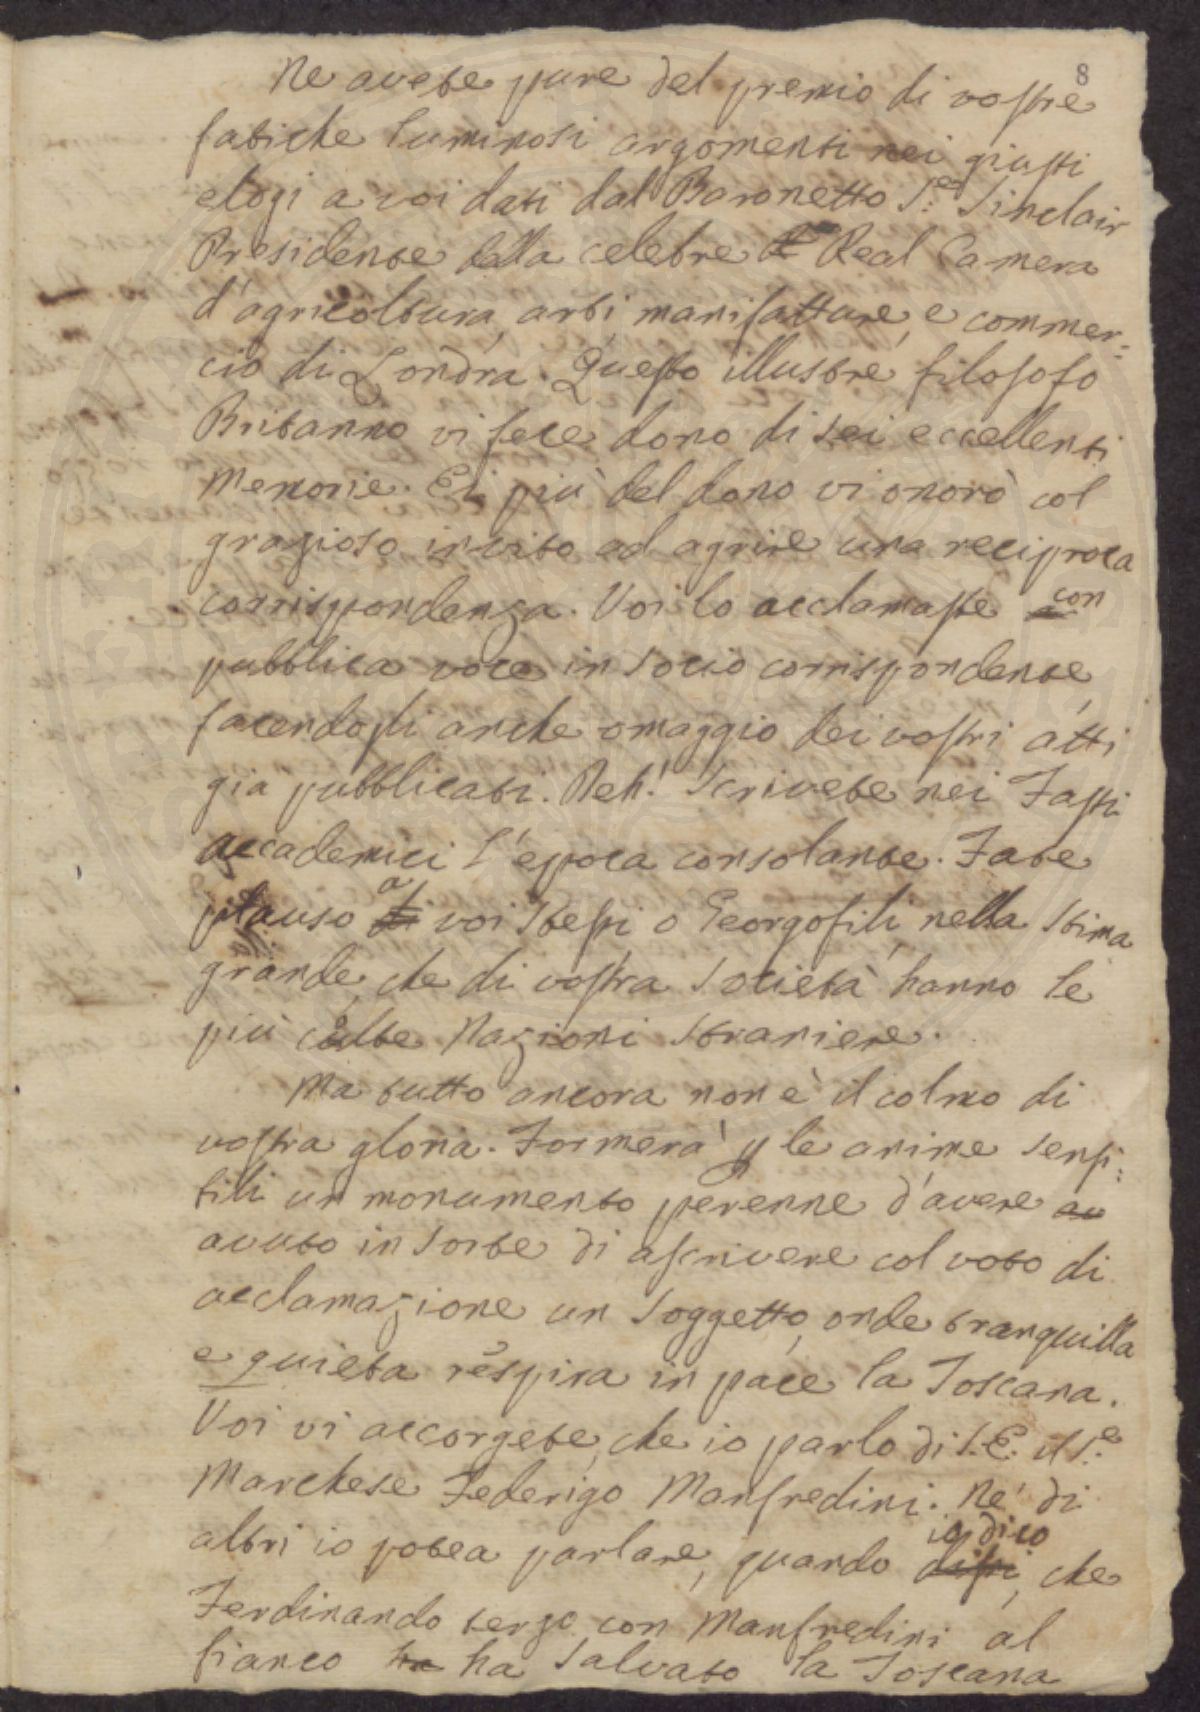 8
Ne avete pure del premio di vostre
fatiche luminosi argomenti nei giusti
elogi a voi dati dal Baronetto S.er Sinclair
Presidente della celebre Real Camera
d'agricoltura, arti, manifatture, e commer=
cio di Londra. Questo illustre filosofo
Britanno vi fece dono di sei eccellenti
Memorie. Ei più del dono vi onorò col
grazioso invito ad aprire una reciproca
corrispondenza. Voi lo acclamaste con
pubblica voce in socio corrispondente,
facendogli anche omaggio dei vostri atti
già pubblicati. Deh! Scrivete nei Fasti
accademici l'epoca consolante. Fate
plauso a voi stessi o Georgofili, nella stima
grande, che di vostra Società hanno le
più culte Nazioni straniere.
Ma tutto ancora non è il colmo di
vostra gloria. Formerà p le anime sensi=
bili un monumento perenne d'avere av
avuto in sorte di ascrivere col voto di
acclamazione un soggetto, onde tranquilla
e quieta respira in pace la Toscana.
Voi vi accorgete, che io parlo di S.E. il S.e
Marchese Federigo Manfredini. Né di
altri io potea parlare, quando dissi io dico, che
Ferdinando terzo con Manfredini al
fianco ha ha salvato la Toscana